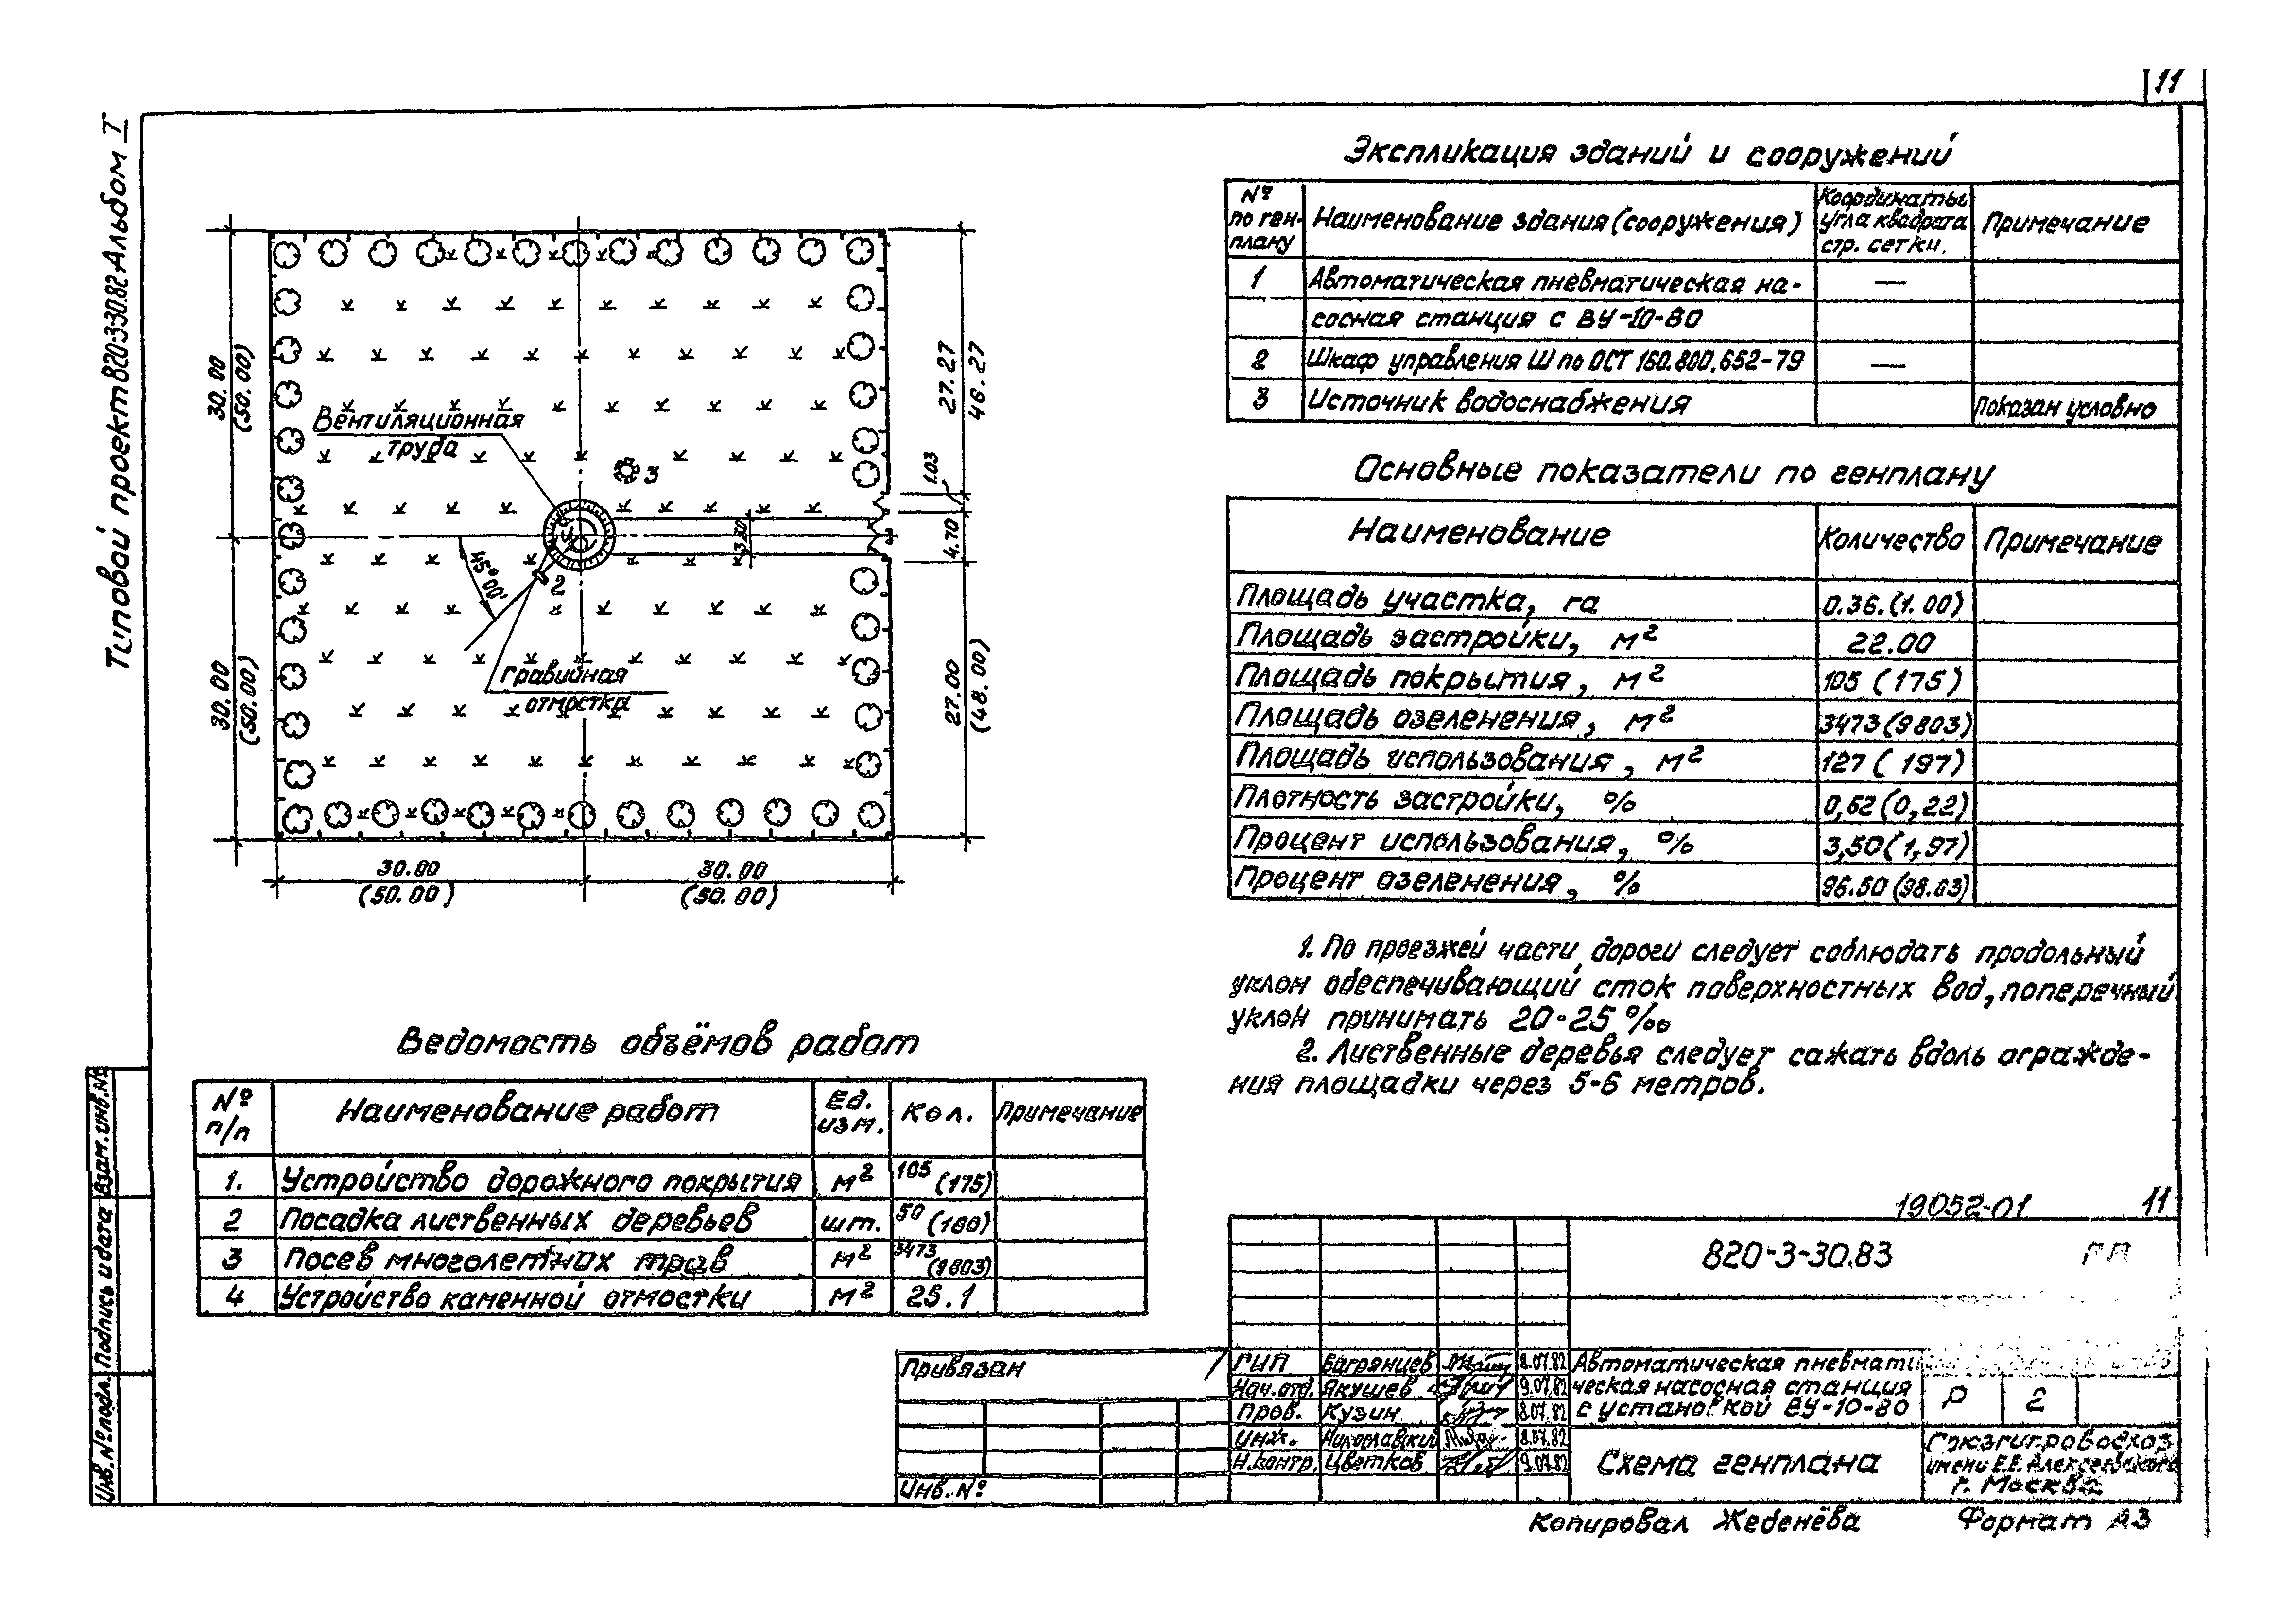 11
Типовой проект 820-3-30.82 Альбом I
30.00
(50.00)
30.00
(50.00)
Вентиляционная
труба
3
1.03
27.27
46.27
4.70
3.50
45°00'
2
Гравийная
отмостка
27.00
(48.00)
30.00
(50.00)
30.00
(50.00)
Экспликация зданий и сооружений
№ по ген-плану | Наименование здания (сооружения) | Координаты угла квадрата стр. сетки. | Примечание
1 | Автоматическая пневматическая на- | —
сосная станция с ВУ-10-80
2 | Шкаф управления Ш по ОСТ 160.800.652-79 | —
3 | Источник водоснабжения | Показан условно
Основные показатели по генплану
Наименование | Количество | Примечание
Площадь участка, га | 0.36.(1.00)
Площадь застройки, м² | 22.00
Площадь покрытия, м² | 105 (175)
Площадь озеленения, м² | 3473 (9803)
Площадь использования, м² | 127 (197)
Плотность застройки, % | 0,62 (0,22)
Процент использования, % | 3,50 (1,97)
Процент озеленения, % | 96.50 (98.03)
1. По проезжей части дороги следует соблюдать продольный
уклон обеспечивающий сток поверхностных вод, поперечный
уклон принимать 20-25 ‰
2. Лиственные деревья следует сажать вдоль огражде-
ния площадки через 5-6 метров.
Ведомость объёмов работ
№ п/п | Наименование работ | Ед. изм. | Кол. | Примечание
1. | Устройство дорожного покрытия | м² | 105 (175)
2 | Посадка лиственных деревьев | шт. | 50 (180)
3 | Посев многолетних трав | м² | 3473 (9803)
4 | Устройство каменной отмостки | м² | 25.1
19052-01 11
820-3-30.83 ГП
Привязан
Инв. №
ГИП Багрянцев 8.07.82
Нач.отд. Якушев 9.07.82
Пров. Кузин 8.07.82
Инж. 8.07.82
Н.контр. Цветков 9.07.82
Автоматическая пневмати
ческая насосная станция
с установкой ВУ-10-80
Р 2
Схема генплана
Союзгипроводхоз
имени Е.Е. Алексеевского
г. Москва
Копировал Жеденёва Формат А3
Инв. № подл. Подпись и дата Взам. инв. №